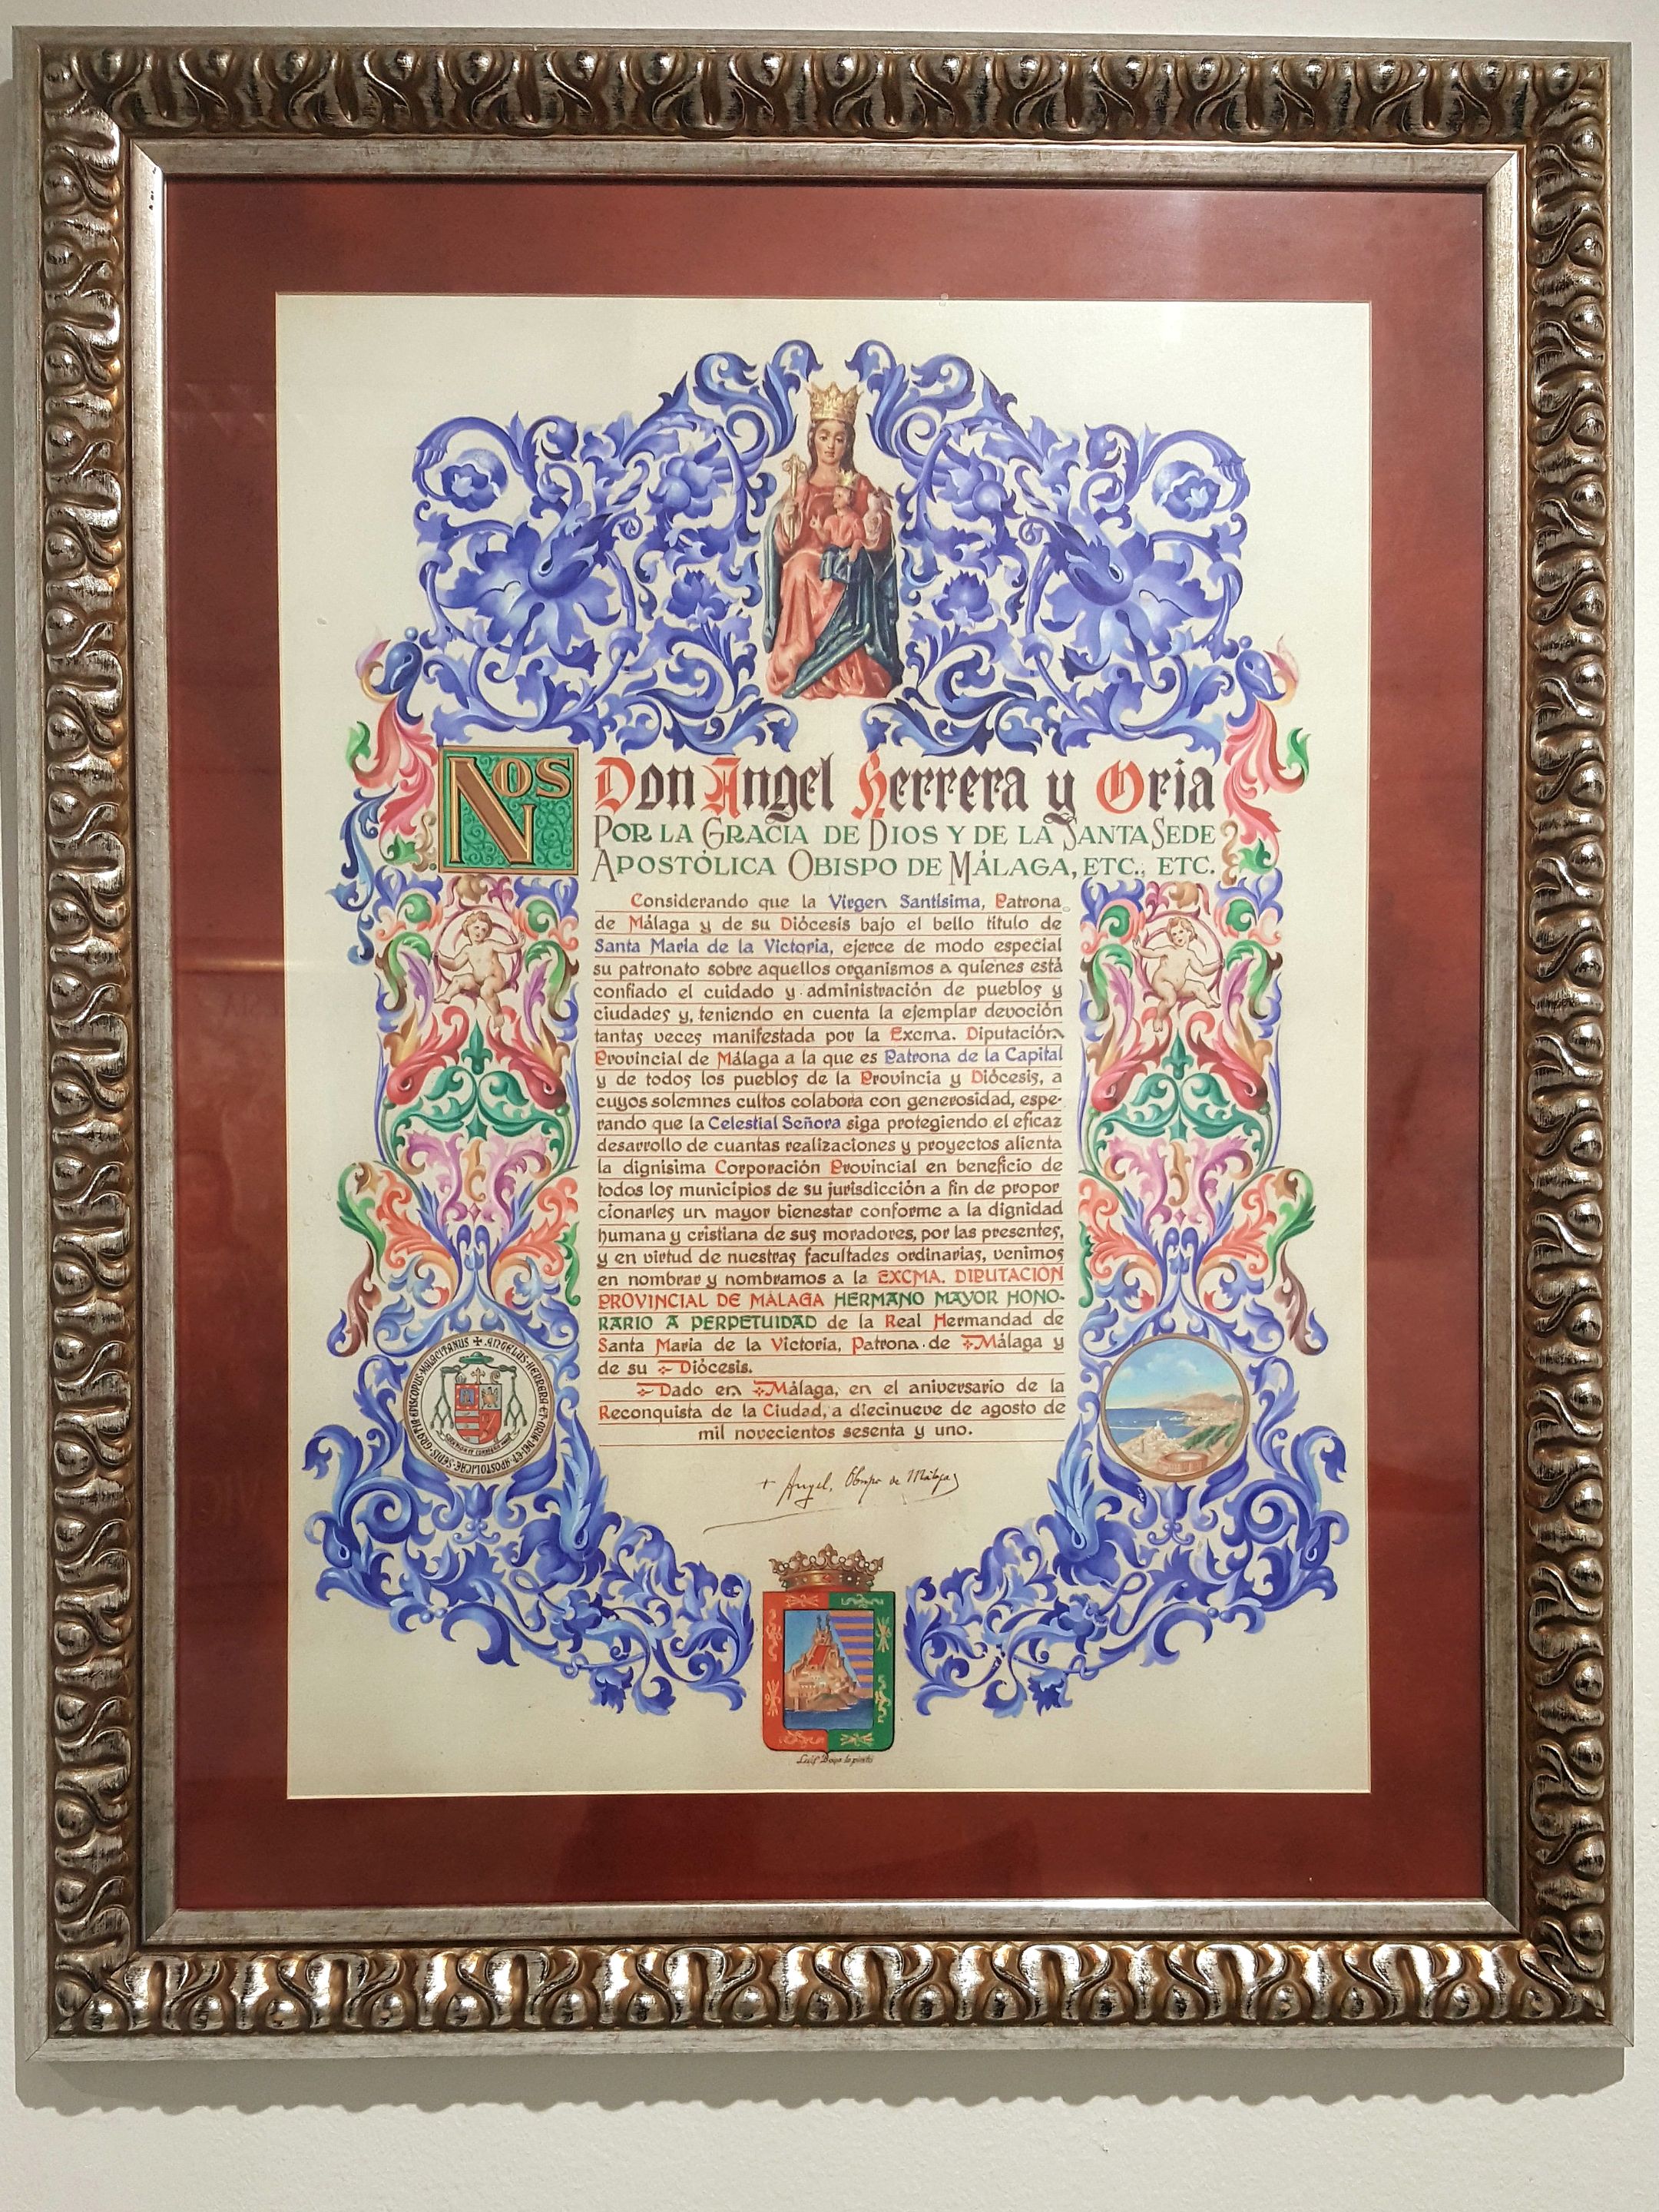 NOS
Don Angel Herrera y Oria
POR LA GRACIA DE DIOS Y DE LA SANTA SEDE
APOSTÓLICA OBISPO DE MÁLAGA, ETC., ETC.
Considerando que la Virgen Santísima, Patrona
de Málaga y de su Diócesis bajo el bello título de
Santa María de la Victoria, ejerce de modo especial
su patronato sobre aquellos organismos a quienes está
confiado el cuidado y administración de pueblos y
ciudades y, teniendo en cuenta la ejemplar devoción
tantas veces manifestada por la Excma. Diputación
Provincial de Málaga a la que es Patrona de la Capital
y de todos los pueblos de la Provincia y Diócesis, a
cuyos solemnes cultos colabora con generosidad, espe-
rando que la Celestial Señora siga protegiendo el eficaz
desarrollo de cuantas realizaciones y proyectos alienta
la dignísima Corporación Provincial en beneficio de
todos los municipios de su jurisdicción a fin de propor
cionarles un mayor bienestar conforme a la dignidad
humana y cristiana de sus moradores, por las presentes,
y en virtud de nuestras facultades ordinarias, venimos
en nombrar y nombramos a la EXCMA. DIPUTACIÓN
PROVINCIAL DE MÁLAGA HERMANO MAYOR HONO-
RARIO A PERPETUIDAD de la Real Hermandad de
Santa María de la Victoria, Patrona de Málaga y
de su Diócesis.
Dado en Málaga, en el aniversario de la
Reconquista de la Ciudad, a diecinueve de agosto de
mil novecientos sesenta y uno.
ANGELUS·HERRERA·ET·ORIA·DEI·ET·APOSTOLICAE·SEDIS·GRATIA·EPISCOPUS·MALACITANUS
+ Angel, Obispo de Málaga
Luis Bono lo pintó